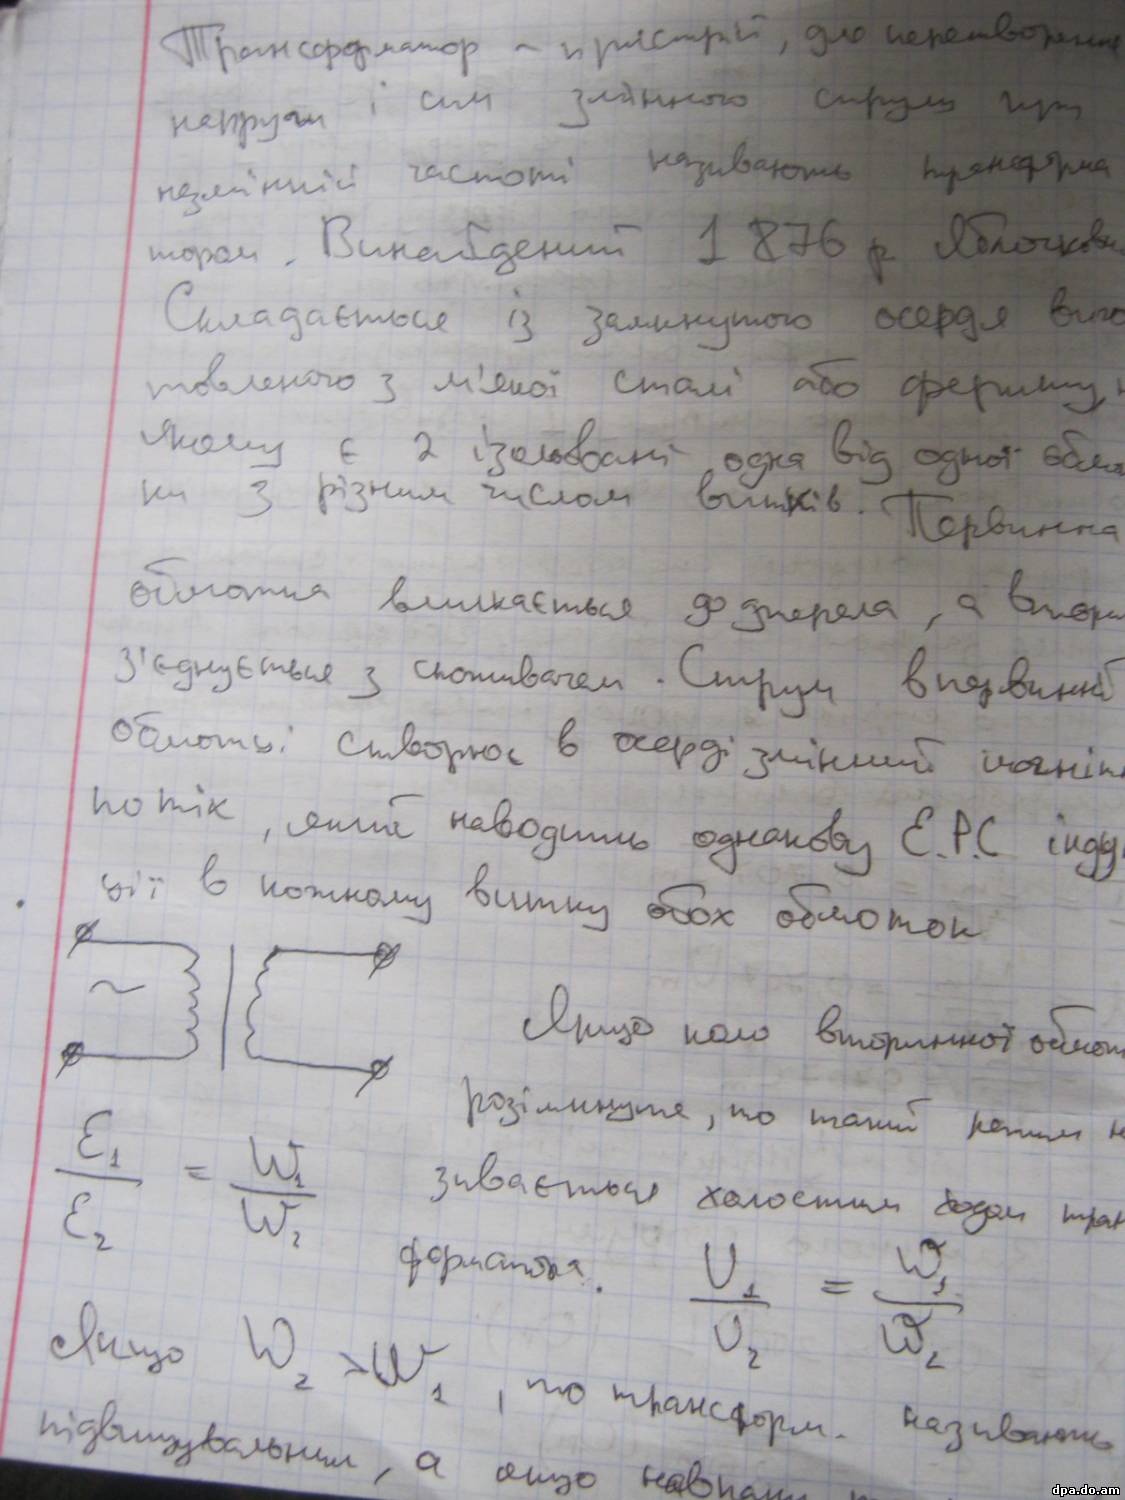 Трансформатор – пристрій, для перетворення
напруги і сили змінного струму при
незмінній частоті називають трансформа
тором. Винайдений 1876 р Яблочков
Складається із замкнутого осердя виго
товленого з м'якої сталі або фериту, н
якому є 2 ізольовані одна від одної обмо
ки з різним числом витків. Первинна
обмотка вмикається до джерела, а втори
з'єднується з споживачем. Струм в первинні
обмотці створює в осерді змінний магніт
потік, який наводить однакову Е.Р.С інду
ції в кожному витку обох обмоток
~
Якщо коло вторинної обмот
розімкнуте, то такий режим н
Ɛ1/Ɛ2 = W1/W2
зивається холостим ходом тран
форматора. U1/U2 = W1/W2
Якщо W2 > W1, то трансформ. називають
підвищувальним, а якщо навпаки
dpa.do.am